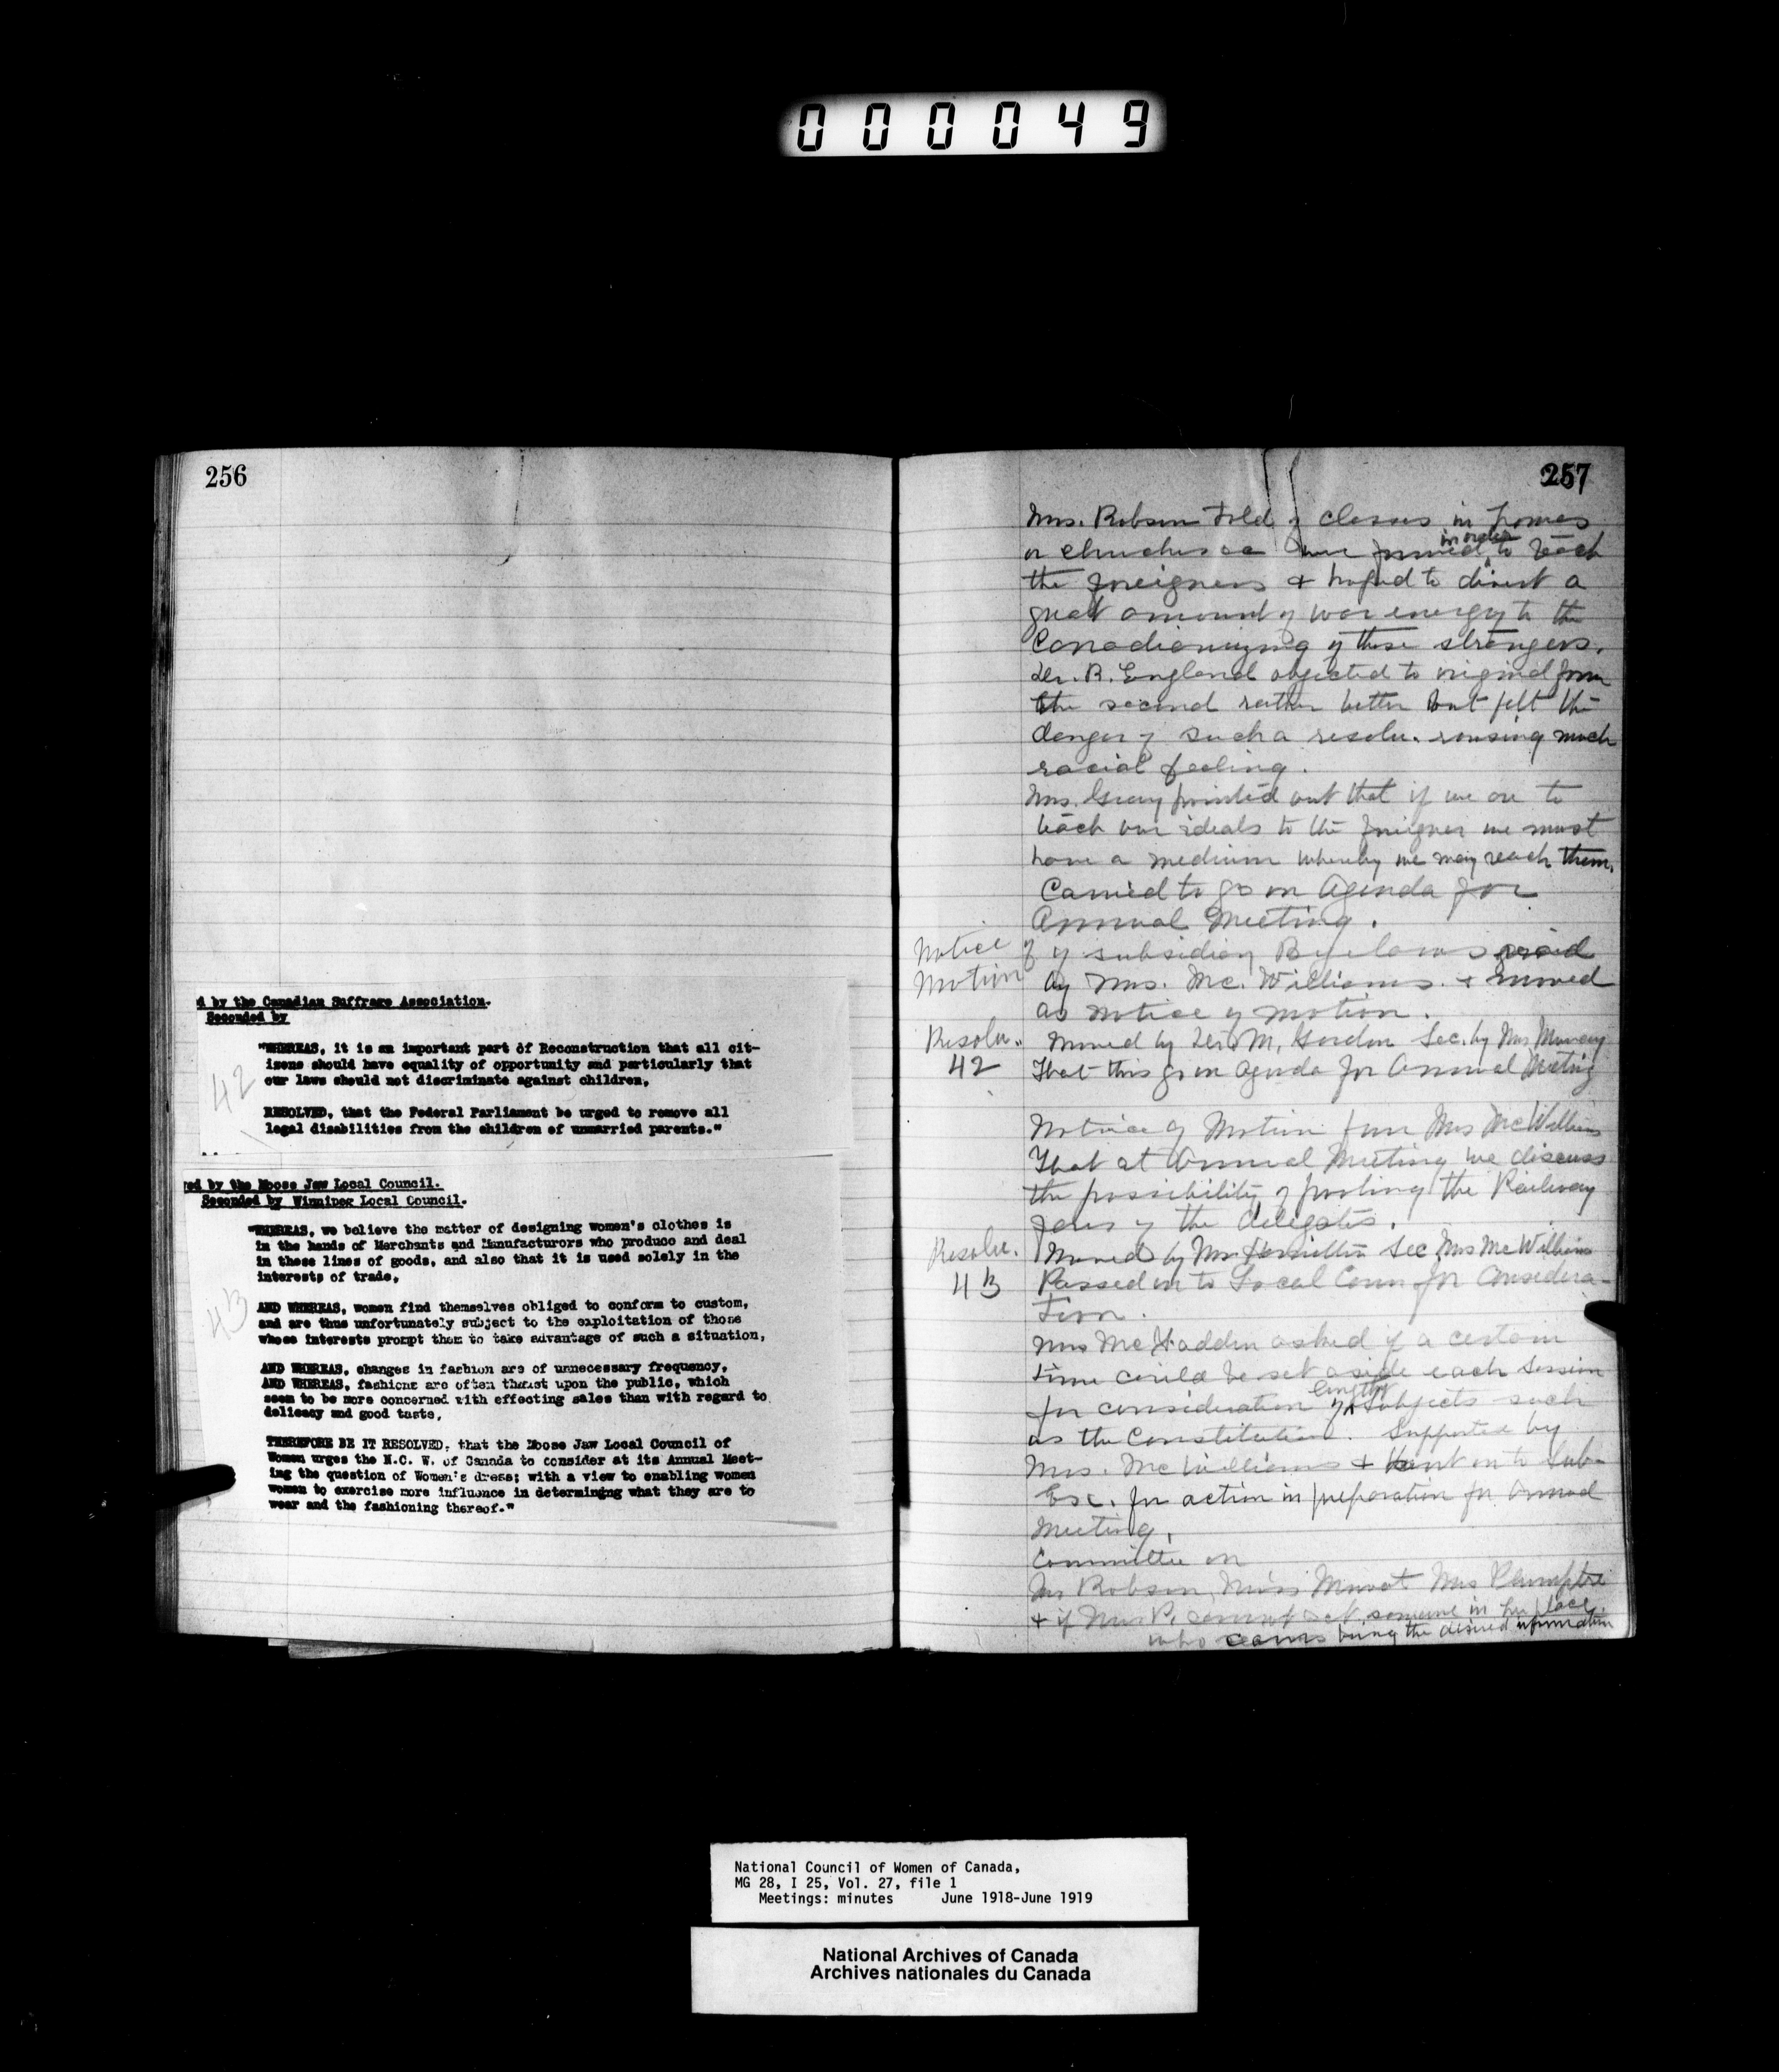 000049
256
d by the Canadian Suffrage Association.
Seconded by
42
"WHEREAS, it is an important part of Reconstruction that all cit-
izens should have equality of opportunity and particularly that
our laws should not discriminate against children,
RESOLVED, that the Federal Parliament be urged to remove all
legal disabilities from the children of unmarried parents."
ed by the Moose Jaw Local Council.
Seconded by Winnipeg Local Council.
43
"WHEREAS, we believe the matter of designing women's clothes is
in the hands of Merchants and Manufacturors who produce and deal
in these lines of goods, and also that it is used solely in the
interests of trade,
AND WHEREAS, women find themselves obliged to conform to custom,
and are thus unfortunately subject to the exploitation of those
whose interests prompt them to take advantage of such a situation,
AND WHEREAS, changes in fashion are of unnecessary frequency,
AND WHEREAS, fashions are often thrust upon the public, which
seem to be more concerned with effecting sales than with regard to
delicacy and good taste,
THEREFORE BE IT RESOLVED, that the Moose Jaw Local Council of
Women urges the N.C. W. of Canada to consider at its Annual Meet-
ing the question of Women's dress; with a view to enabling women
women to exercise more influence in determingng what they are to
wear and the fashioning thereof."
257
Mrs. Robson told of classes in homes
or churches formed in order to teach
the foreigners & hoped to divert a
great amount of war energy to the
Canadianizing of these strangers.
Dr. R. England objected to original form
the second rather better but felt the
danger of such a resolu. rousing much
racial feeling.
Mrs. Gray pointed out that if we are to
teach our ideals to the foreigner we must
have a medium whereby we may reach them.
Carried to go on Agenda for
Annual Meeting.
Notice of of subsidiary Byelaws read
Motion by Mrs. McWilliams. & moved
as notice of motion.
Resolu. Moved by Dr. M. Gordon Sec. by Mrs Murray
42 That this go on agenda for Annual Meeting
Notice of Motion from Mrs McWilliams
That at Annual Meeting we discuss
the possibility of pooling the Railway
fares of the delegates.
Resolu. Moved by Mrs Hamilton Sec Mrs McWilliams
43 Passed on to Local Coun for Considera-
tion.
Mrs McFadden asked if a certain
time could be set aside each session
for consideration of lengthy subjects such
as the Constitution. Supported by
Mrs. McWilliams & sent on to Sub-
Exc. for action in preparation for Annual
Meeting.
Committee on
Mrs Robson, Miss Mowat Mrs Plumptre
& if Mrs P. cannot act someone in her place
who can bring the desired information
National Council of Women of Canada,
MG 28, I 25, Vol. 27, file 1
Meetings: minutes June 1918-June 1919
National Archives of Canada
Archives nationales du Canada